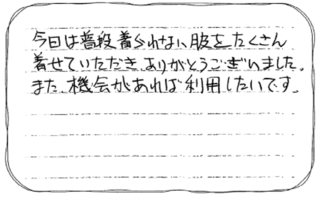 今日は普段着られない服をたくさん
着せていただきありがとうございました。
また、機会があれば利用したいです。